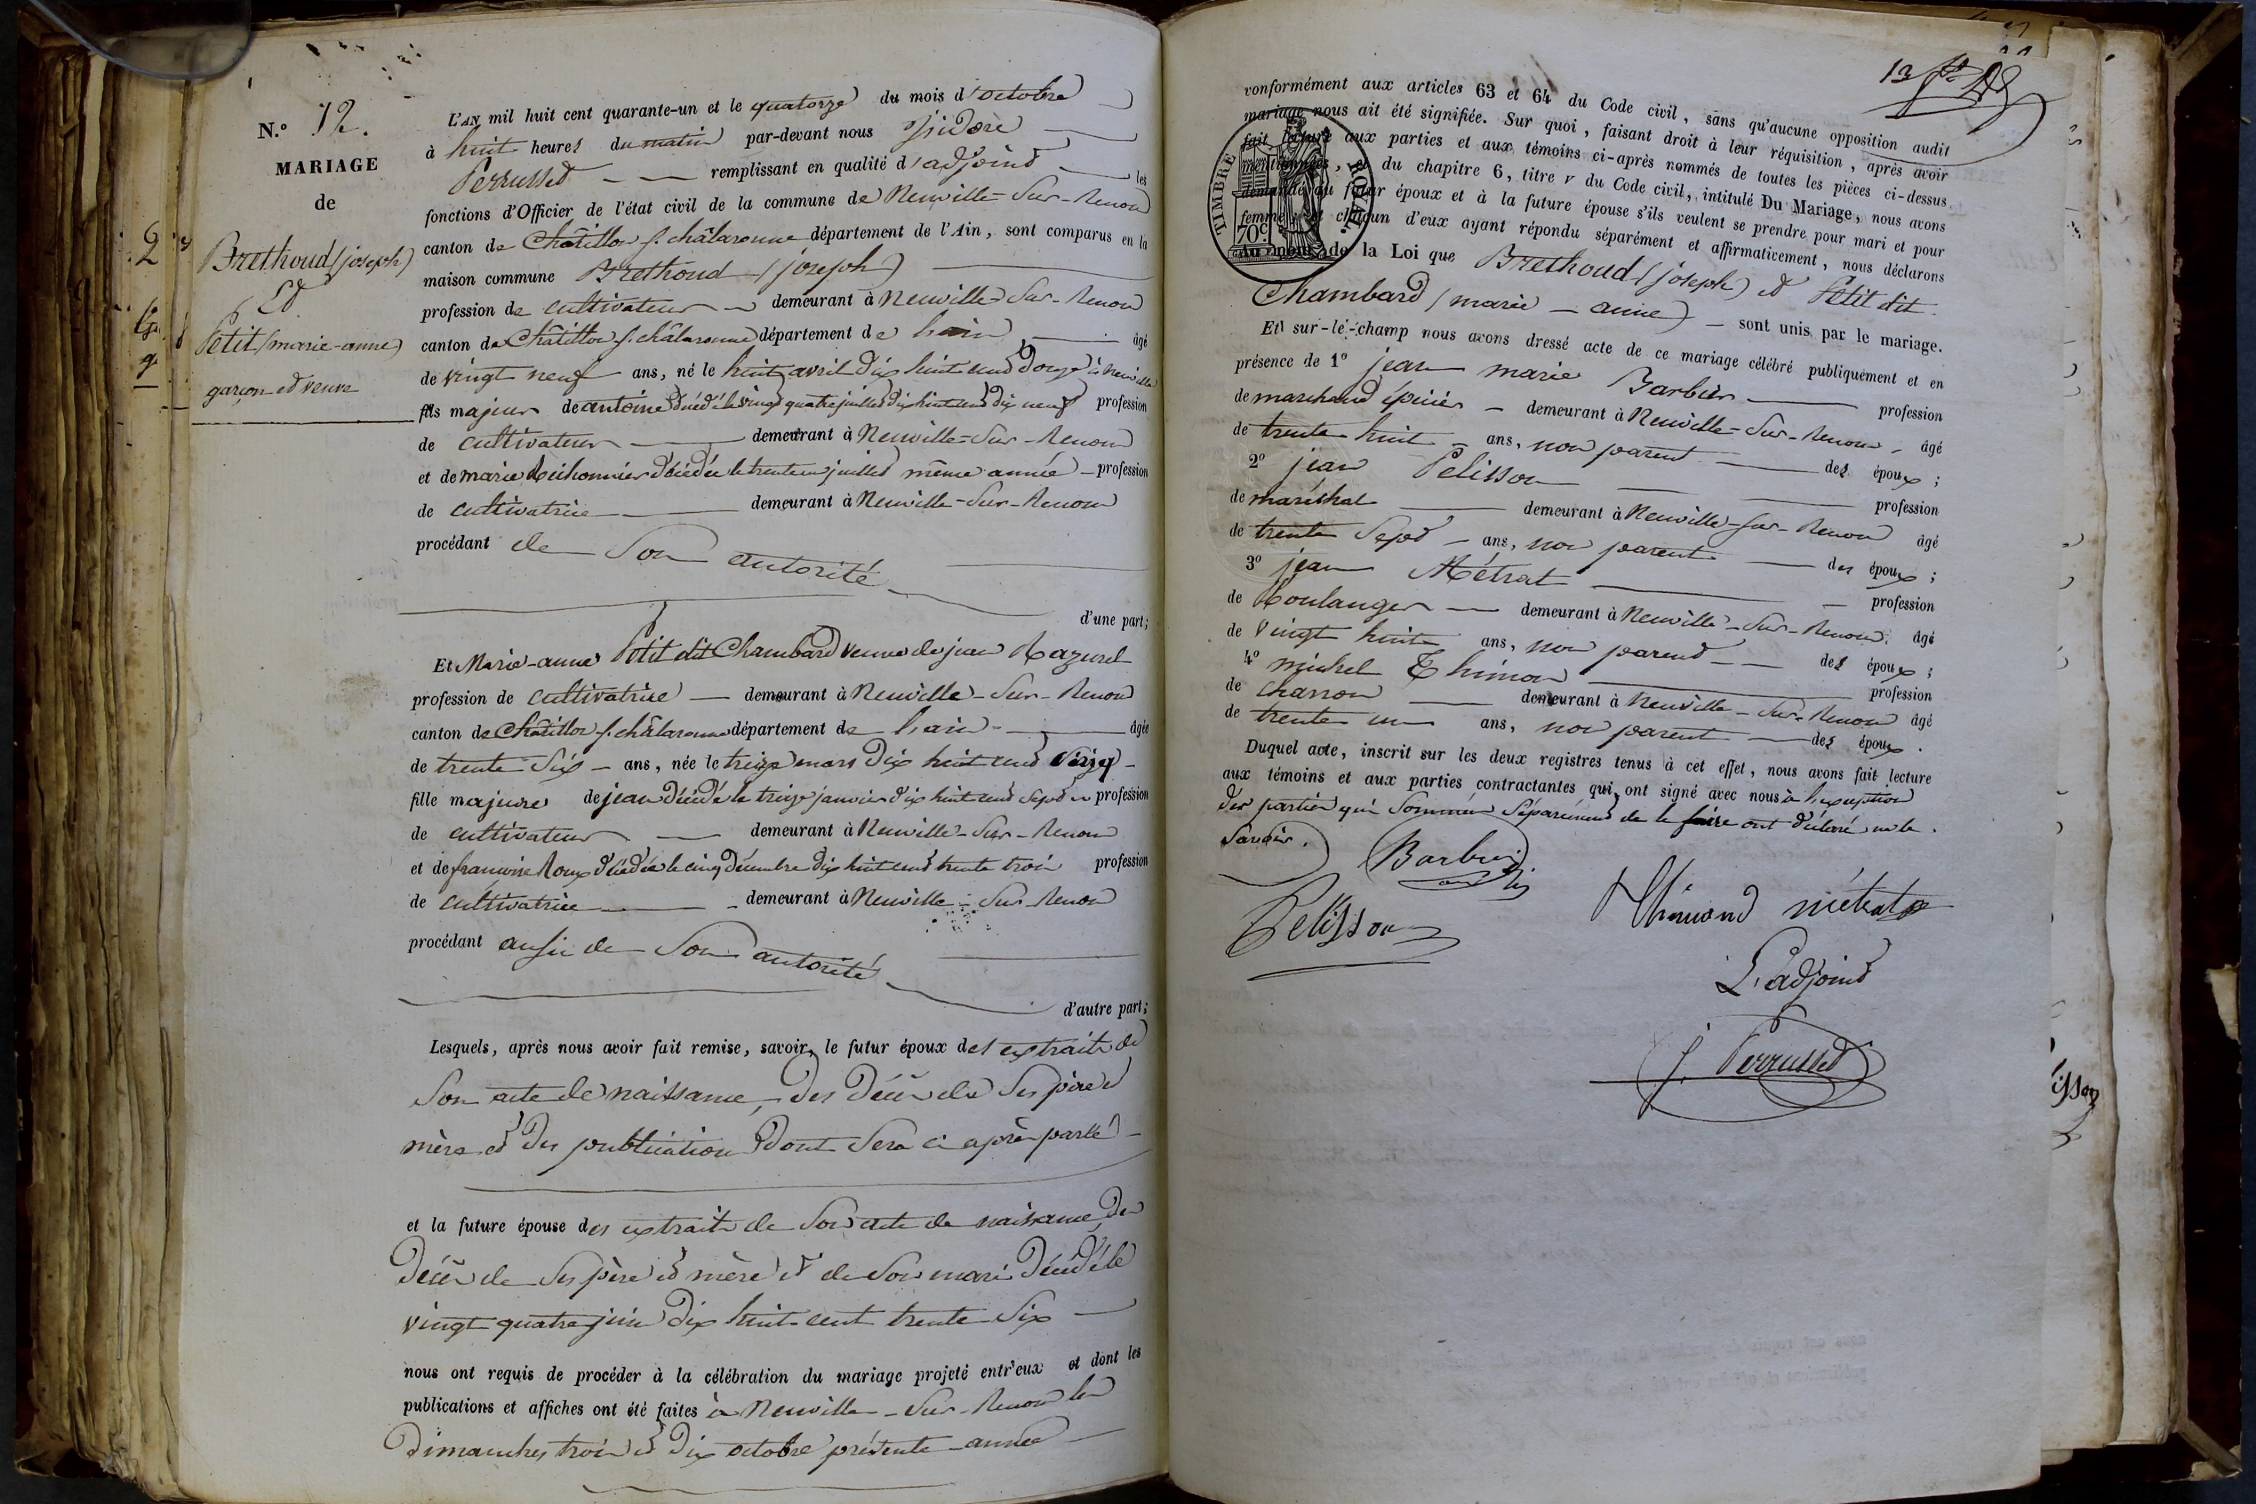 N.º 12.
MARIAGE
de
Brethoud (joseph)
Et
Petit (marie-anne)
garçon et veuve
2
L'AN mil huit cent quarante-un et le quatorze du mois d'octobre
à huit heures du matin par-devant nous Isidore
Perrusset remplissant en qualité d'adjoint les
fonctions d'Officier de l'état civil de la commune de Neuville-Sur-Renom
canton de Châtillon s. châlaronne département de l'Ain, sont comparus en la
maison commune Brethoud (joseph)
profession de cultivateur demeurant à Neuville-Sur-Renom
canton de Châtillon s. châlaronne département de l'ain âgé
de vingt neuf ans, né le huit avril dix huit cent douze à Neuville
fils majeur de antoine décédé le vingt quatre juillet dix huit cent dix neuf profession
de cultivateur demeurant à Neuville-Sur-Renom
et de marie décédée le trente un juillet même année profession
de cultivatrice demeurant à Neuville-Sur-Renom
procédant de Son autorité
d'une part;
Et Marie-anne Petit dit Chambard veuve de jean Mazurel
profession de cultivatrice demeurant à Neuville-Sur-Renom
canton de Châtillon s. châlaronne département de l'ain âgée
de trente Six ans, née le treize mars dix huit cent
fille majeure de jean décédé le treize janvier dix huit cent Sept profession
de cultivateur demeurant à Neuville-Sur-Renom
et de francoise Roux décédée le cinq décembre dix huit cent trente trois profession
de cultivatrice demeurant à Neuville-Sur-Renom
procédant aussi de Son autorité
d'autre part;
Lesquels, après nous avoir fait remise, savoir, le futur époux des extraits de
Son acte de naissance, des décès de Ses père et
mère et des publications dont Sera ci après parlé
et la future épouse des extraits de Son acte de naissance, des
décès de Ses père et mère et de Son mari décédé le
vingt quatre juin dix huit cent trente Six
nous ont requis de procéder à la célébration du mariage projeté entr'eux et dont les
publications et affiches ont été faites à Neuville-Sur-Renom les
dimanches trois et dix octobre présente année
13
conformément aux articles 63 et 64 du Code civil, sans qu'aucune opposition audit
mariage nous ait été signifiée. Sur quoi, faisant droit à leur réquisition, après avoir
fait lecture aux parties et aux témoins ci-après nommés de toutes les pièces ci-dessus
mentionnées, et du chapitre 6, titre V du Code civil, intitulé Du Mariage, nous avons
demandé au futur époux et à la future épouse s'ils veulent se prendre pour mari et pour
femme; et chacun d'eux ayant répondu séparément et affirmativement, nous déclarons
Au nom de la Loi que Brethoud (joseph) et Petit dit
Chambard (marie-anne) sont unis par le mariage.
TIMBRE ROYAL.
70c
Et sur-le-champ nous avons dressé acte de ce mariage célébré publiquement et en
présence de 1º jean marie Barbier profession
de marchand épicier demeurant à Neuville-Sur-Renom, âgé
de trente huit ans, non parent des époux;
2º jean Pelisson profession
de maréchal demeurant à Neuville-Sur-Renom âgé
de trente Sept ans, non parent des époux;
3º jean Métrat profession
de Boulanger demeurant à Neuville-Sur-Renom, âgé
de Vingt huit ans, non parent des époux;
4º michel Thimon profession
de charron demeurant à Neuville-Sur-Renom âgé
de trente un ans, non parent des époux.
Duquel acte, inscrit sur les deux registres tenus à cet effet, nous avons fait lecture
aux témoins et aux parties contractantes qui ont signé avec nous à l'exception
des parties qui Sommées Séparément de le faire ont déclaré ne le
Savoir.
Barbier
Pelisson
Thimond métrat
L'adjoint
J. Perrusset